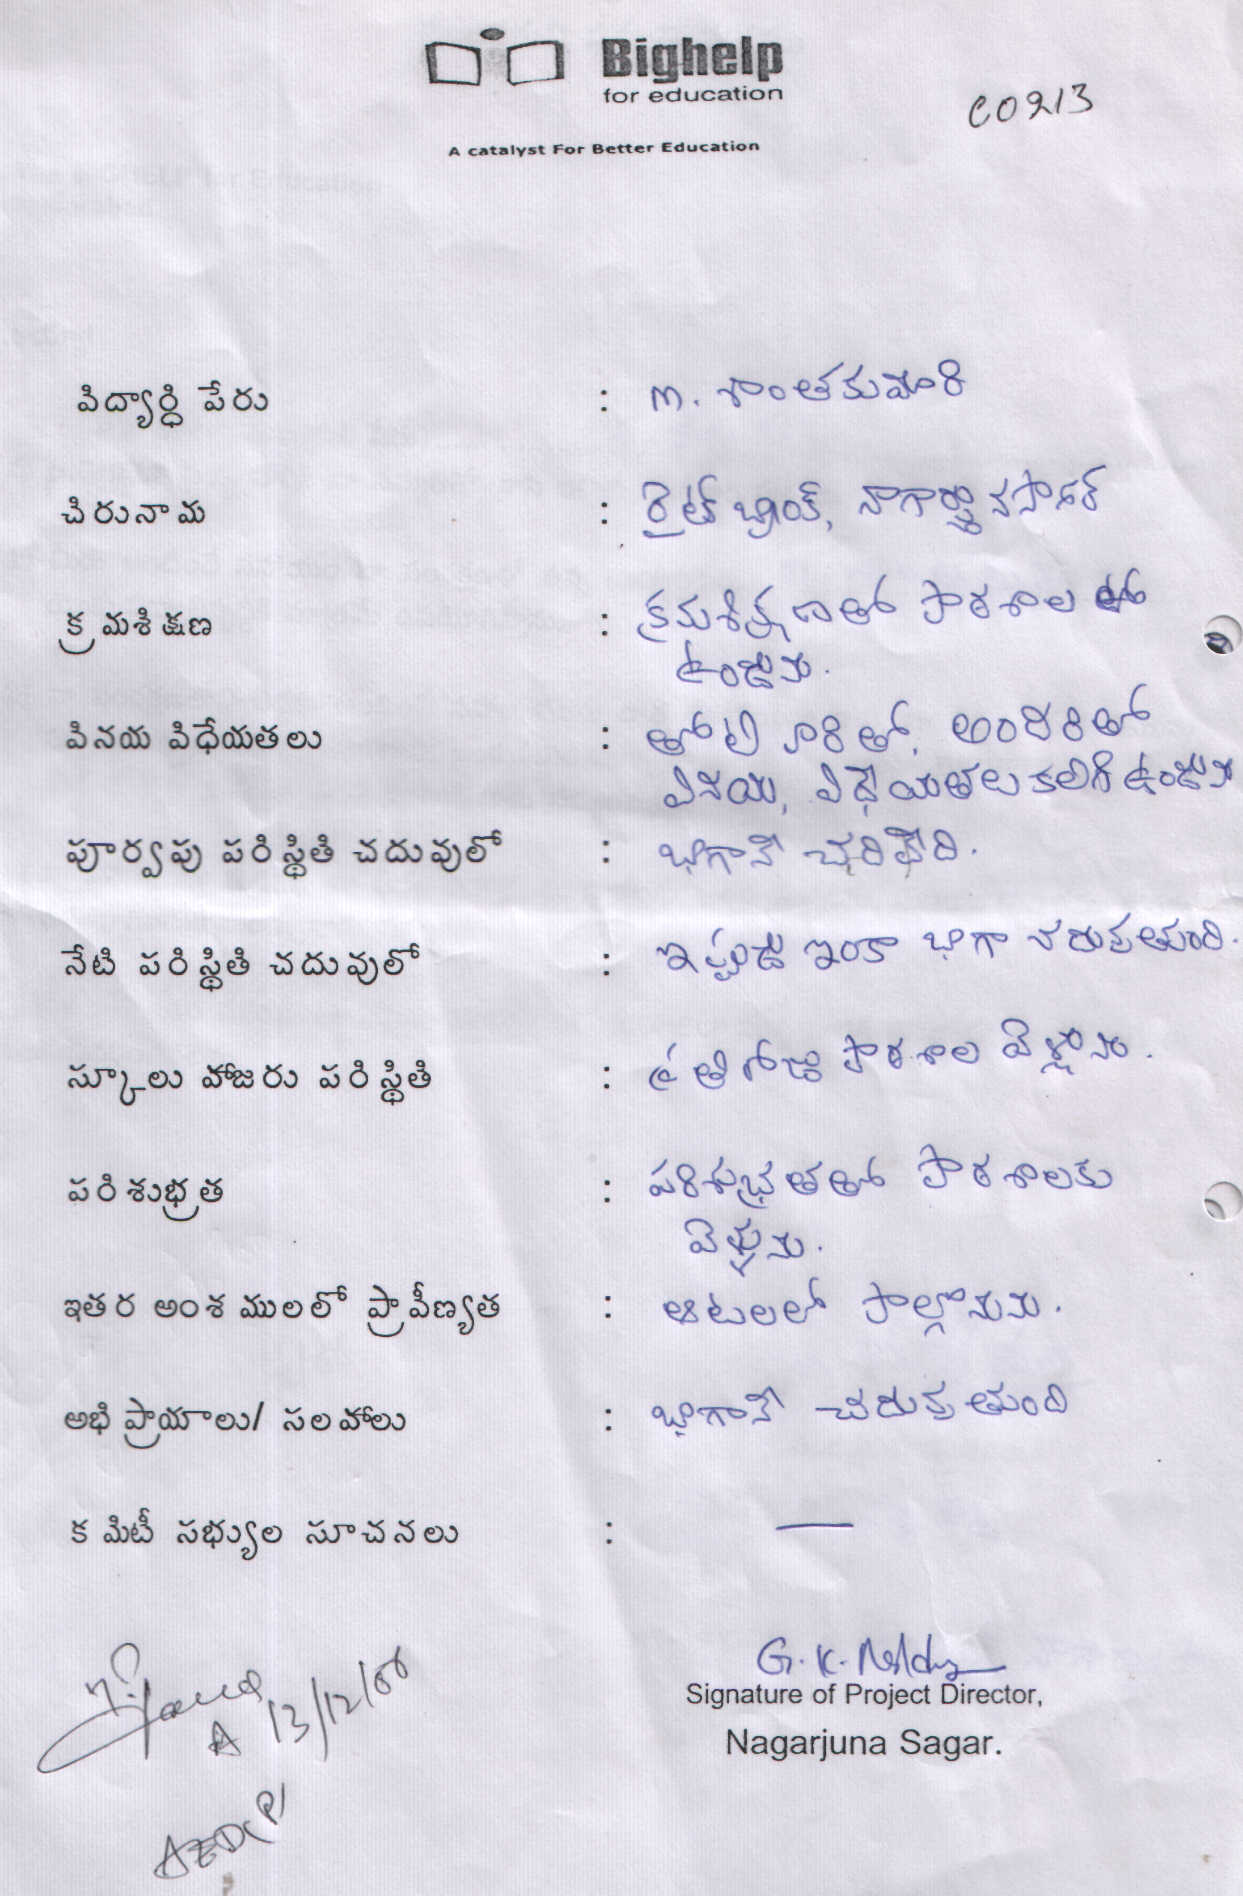 Bighelp
for education
A catalyst For Better Education
C0213
విద్యార్థి పేరు : m. శాంతకుమారి
చిరునామ : రైట్ బ్యాంక్, నాగార్జునసాగర్
క్రమశిక్షణ : క్రమశిక్షణతో పాఠశాల లో
ఉండును.
వినయ విధేయతలు : తోటి వారితో, అందరితో
వినయ, విధేయతలు కలిగి ఉండును
పూర్వపు పరిస్థితి చదువులో : బాగానే చదివేది.
నేటి పరిస్థితి చదువులో : ఇప్పుడు ఇంకా బాగా చదువుతుంది.
స్కూలు హాజరు పరిస్థితి : ప్రతి రోజు పాఠశాల వెళ్లును.
పరిశుభ్రత : పరిశుభ్రతతో పాఠశాలకు
వెళ్ళును.
ఇతర అంశములలో ప్రావీణ్యత : ఆటలలో పాల్గొనును.
అభిప్రాయాలు/ సలహాలు : బాగానే చదువుతుంది
కమిటీ సభ్యుల సూచనలు : —
G. K. Reddy
Signature of Project Director,
Nagarjuna Sagar.
13/12/08